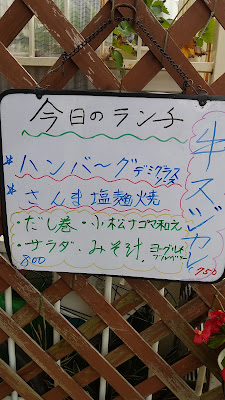 今日のランチ
＊ハンバーグデミグラスソース
＊さんま塩麹焼
・だし巻・小松ナゴマ和え
・サラダ・みそ汁・ヨーグルトブルーベリー
800
牛スジカレー
750